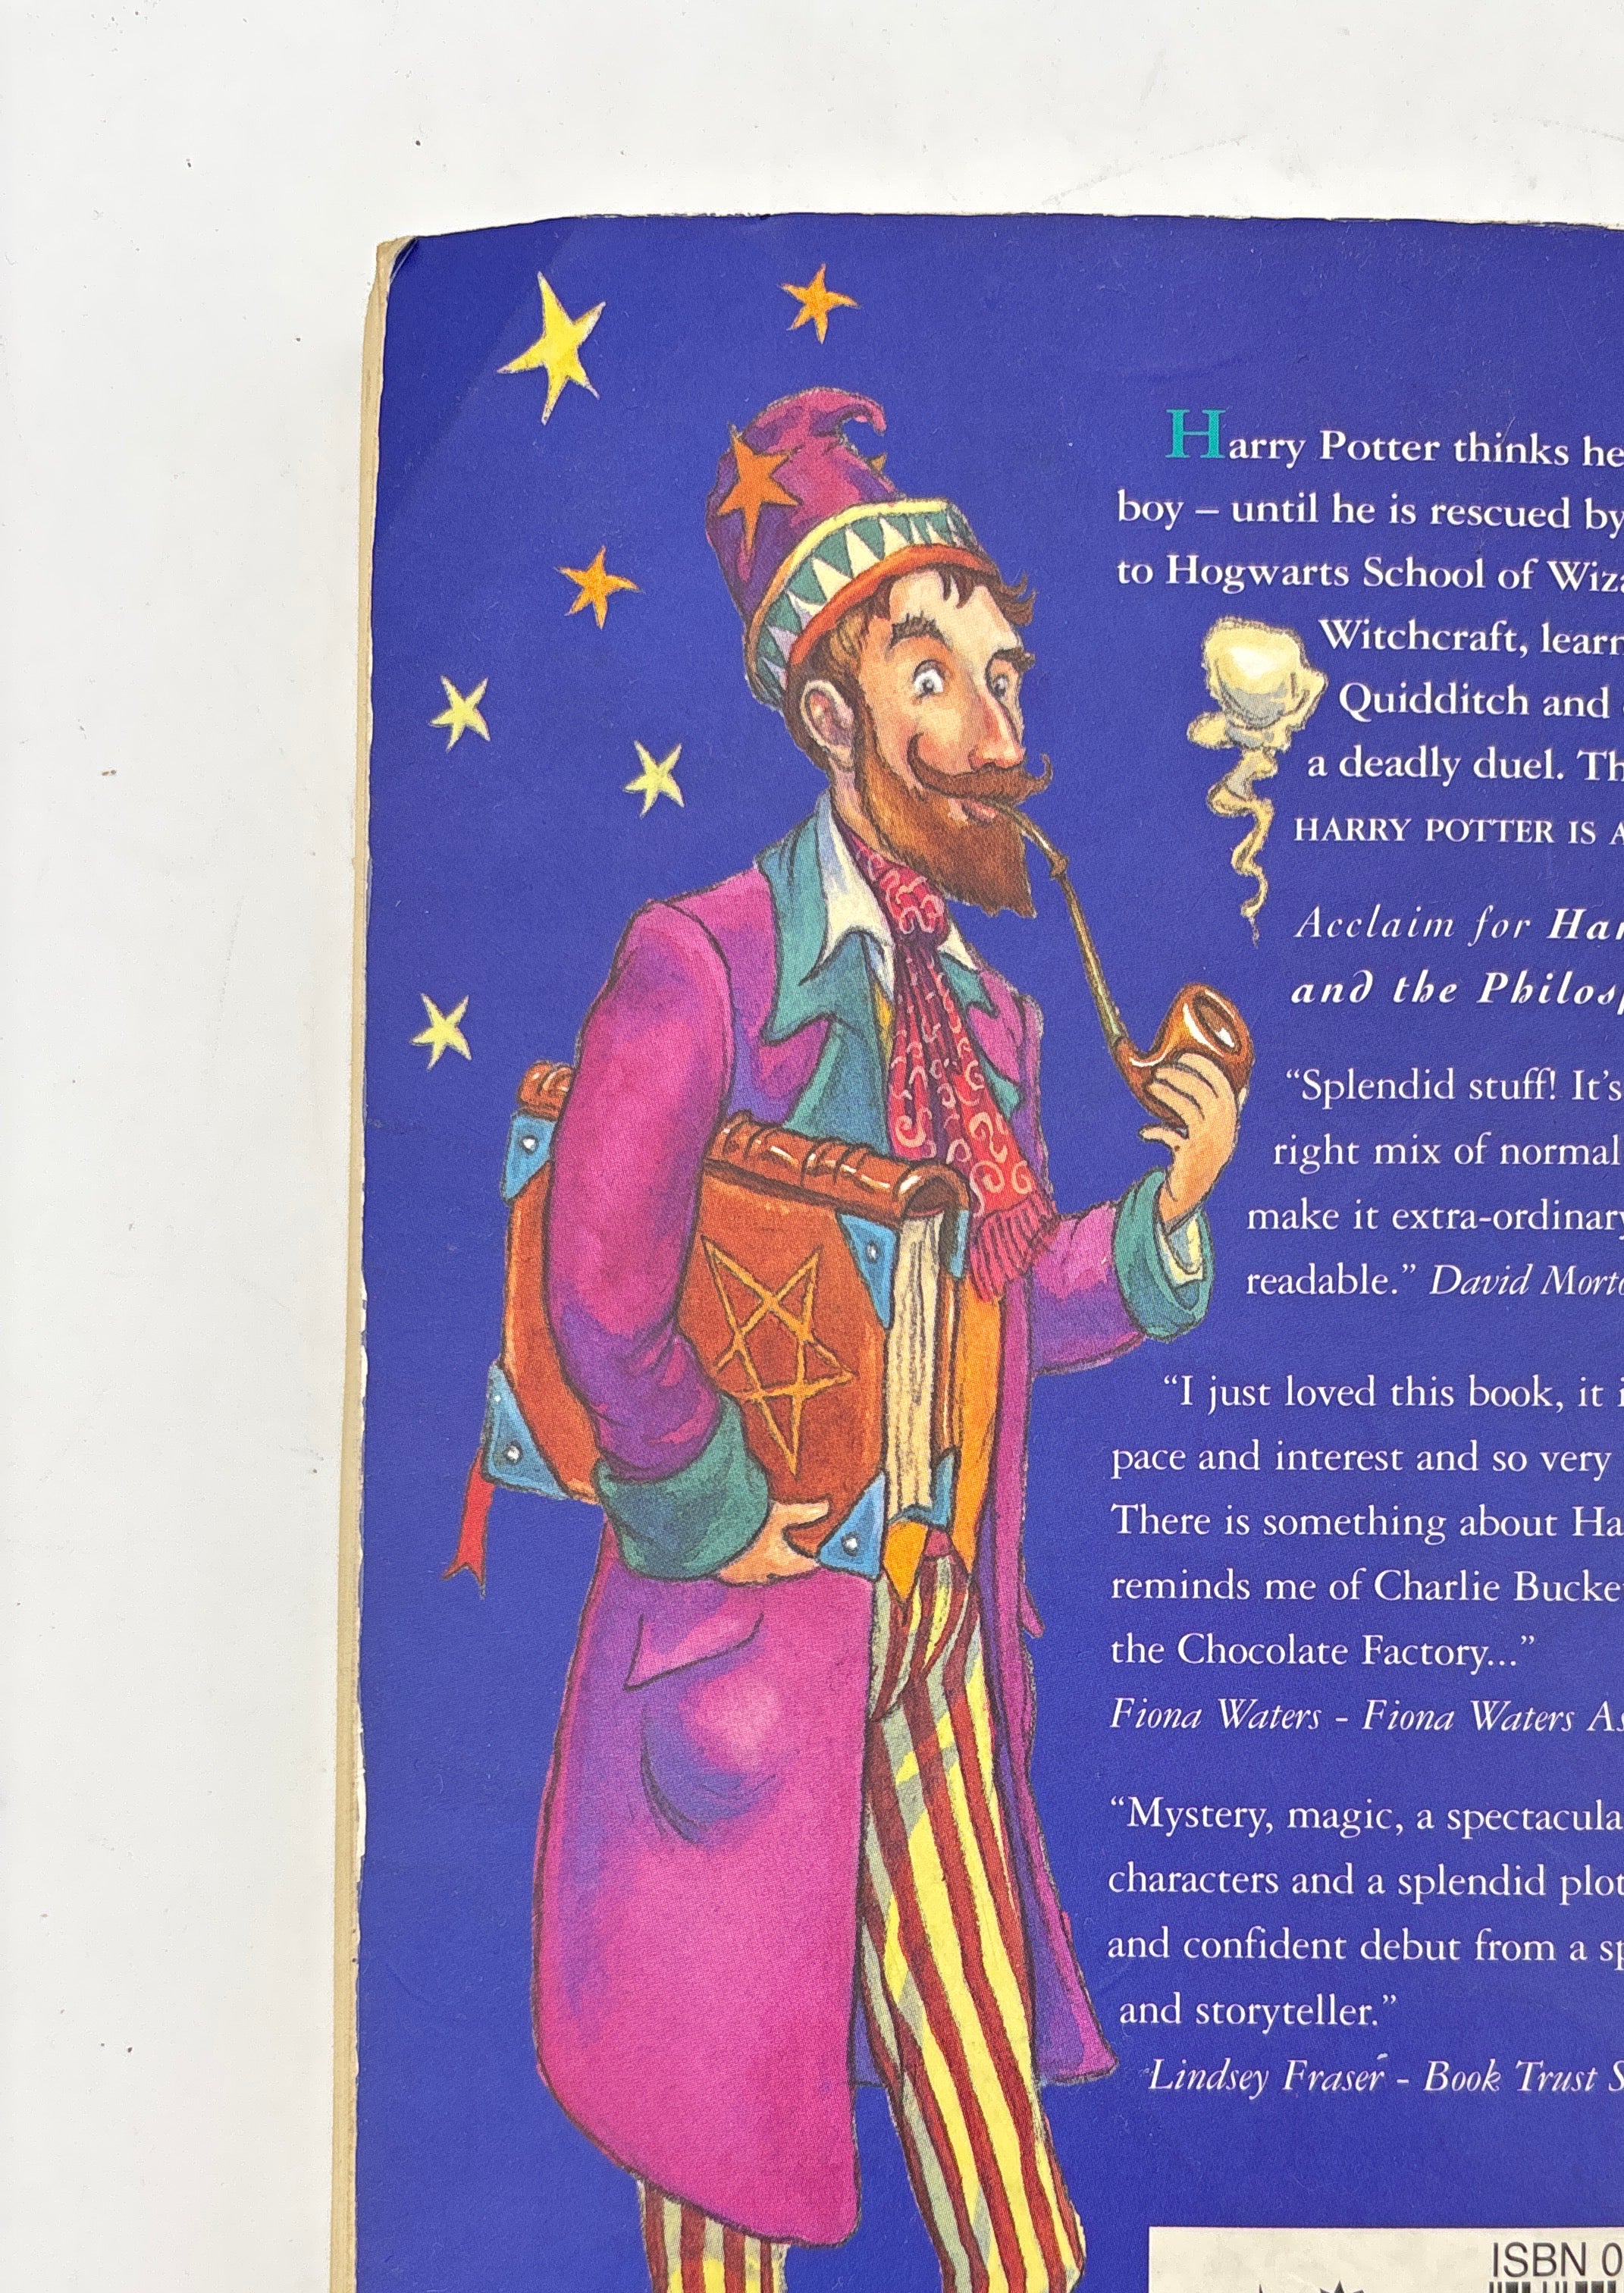 Harry Potter thinks he
boy – until he is rescued by
to Hogwarts School of
Witchcraft,
Quidditch and
a deadly duel.
HARRY POTTER IS
Acclaim for
and the
“Splendid stuff! It’s
right mix of normal
make it
readable.” David
“I just loved this book, it
pace and interest and so very
There is something about
reminds me of Charlie
the Chocolate Factory...”
Fiona Waters - Fiona Waters
“Mystery, magic, a
characters and a splendid
and confident debut from a
and storyteller.”
Lindsey Fraser - Book Trust
ISBN 0